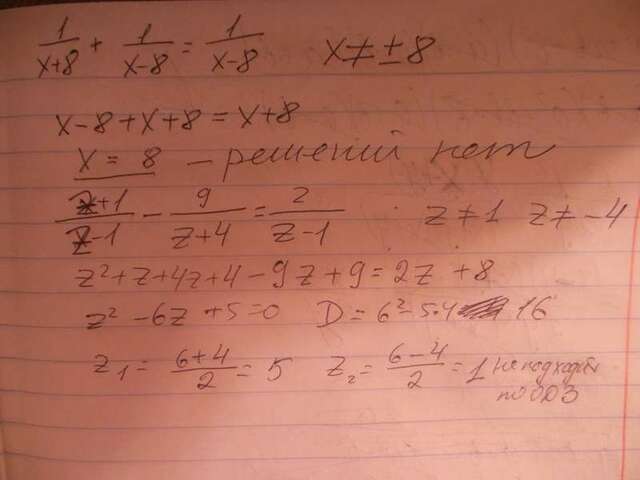 1/(x+8) + 1/(x-8) = 1/(x-8) x ≠ ±8
x-8+x+8 = x+8
x = 8 - решений нет
(z+1)/(z-1) - 9/(z+4) = 2/(z-1) z ≠ 1 z ≠ -4
z²+z+4z+4-9z+9=2z+8
z²-6z+5=0 D=6²-5·4 16
z₁ = (6+4)/2 = 5 z₂ = (6-4)/2 = 1 не подходит
по ОДЗ